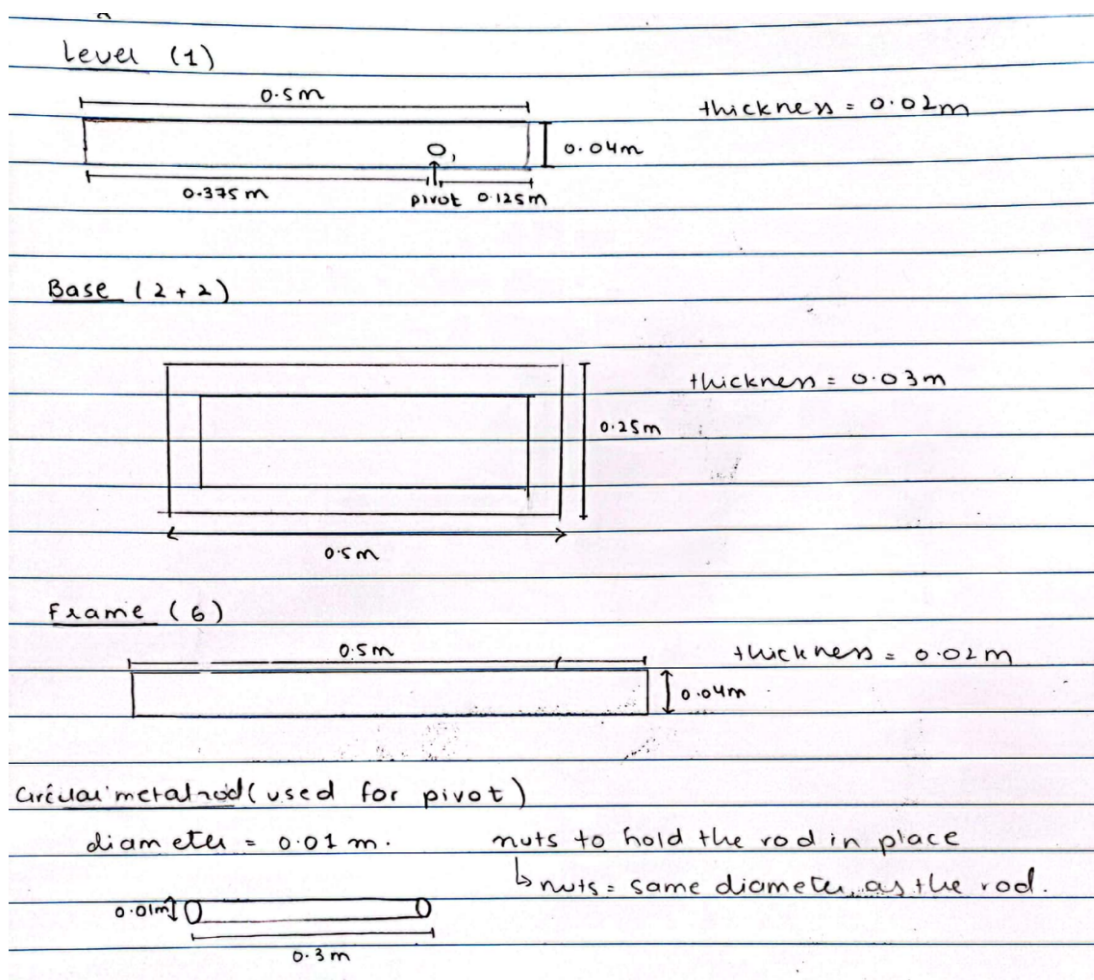 Level (1)
0.5m
thickness = 0.02m
0.04m
0.375m
pivot 0.125m
Base (2+2)
thickness = 0.03m
0.25m
0.5m
Frame (6)
0.5m
thickness = 0.02m
0.04m
circular metal rod (used for pivot)
diameter = 0.01 m.
nuts to hold the rod in place
↳ nuts = same diameter as the rod.
0.01m
0.3m